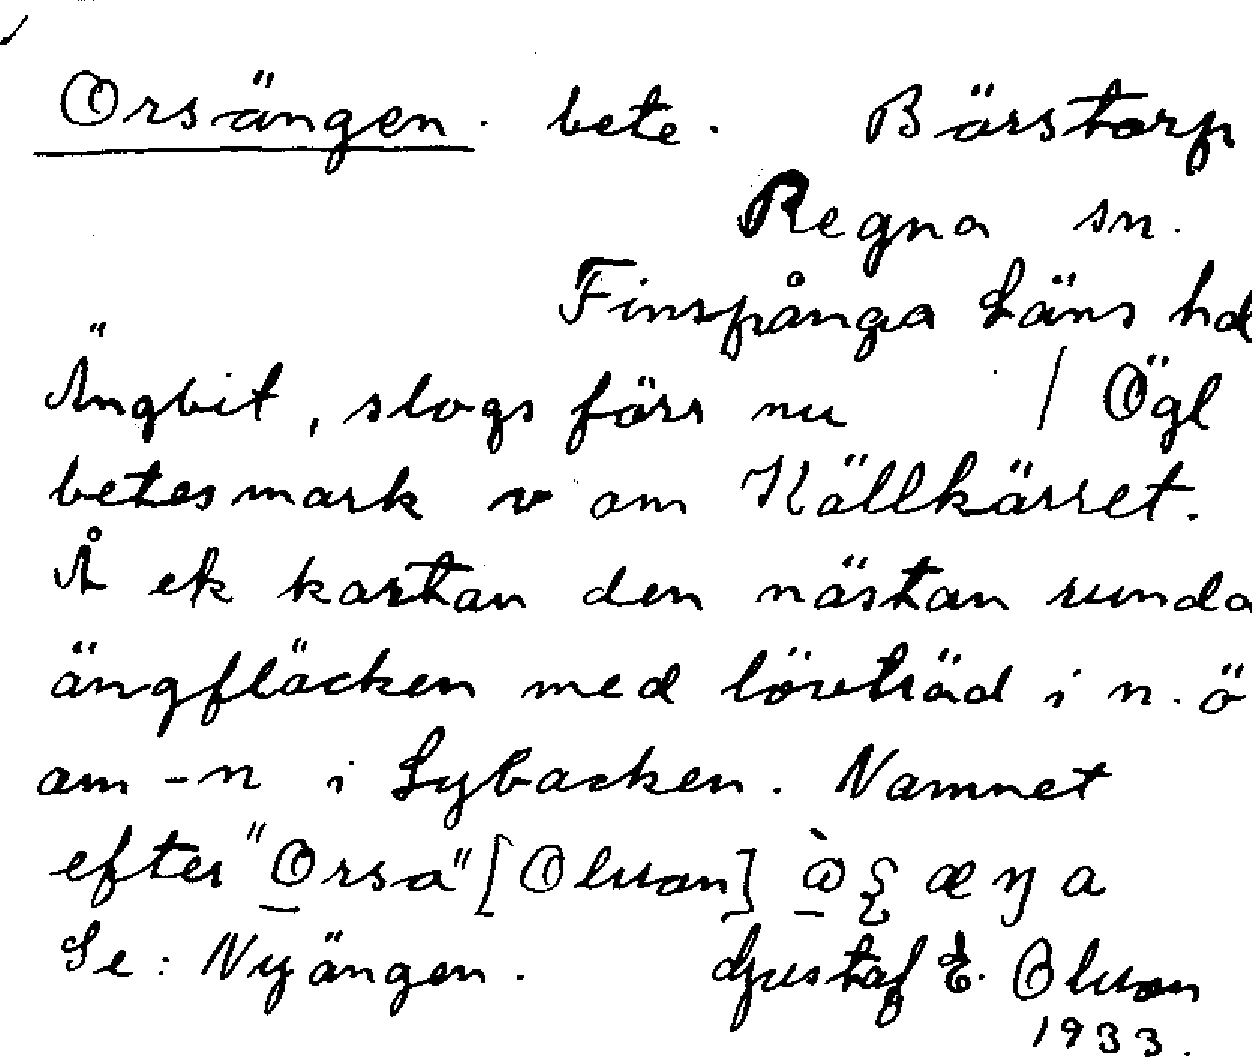 Orsängen. bete. Bärstorp
Regna sn.
Finspånga Läns hd
Ängbit, slogs förr nu / Ögl
betesmark v om Källkärret.
Å ek kartan den nästan runda
ängfläcken med lövträd i n.ö
om -n i Lybacken. Namnet
efter "Orsa" [Olsson]
Se: Nyängen. Gustaf E. Olsson
1933.